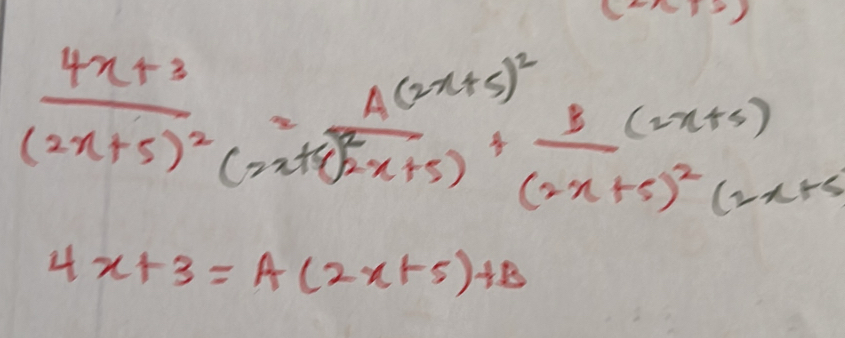 (2x+5)
4x+3/(2x+5)² = A/(2x+5) + B/(2x+5)²
(2x+5)² (2x+5)
(2x+5)² (2x+5
4x+3 = A(2x+5)+B